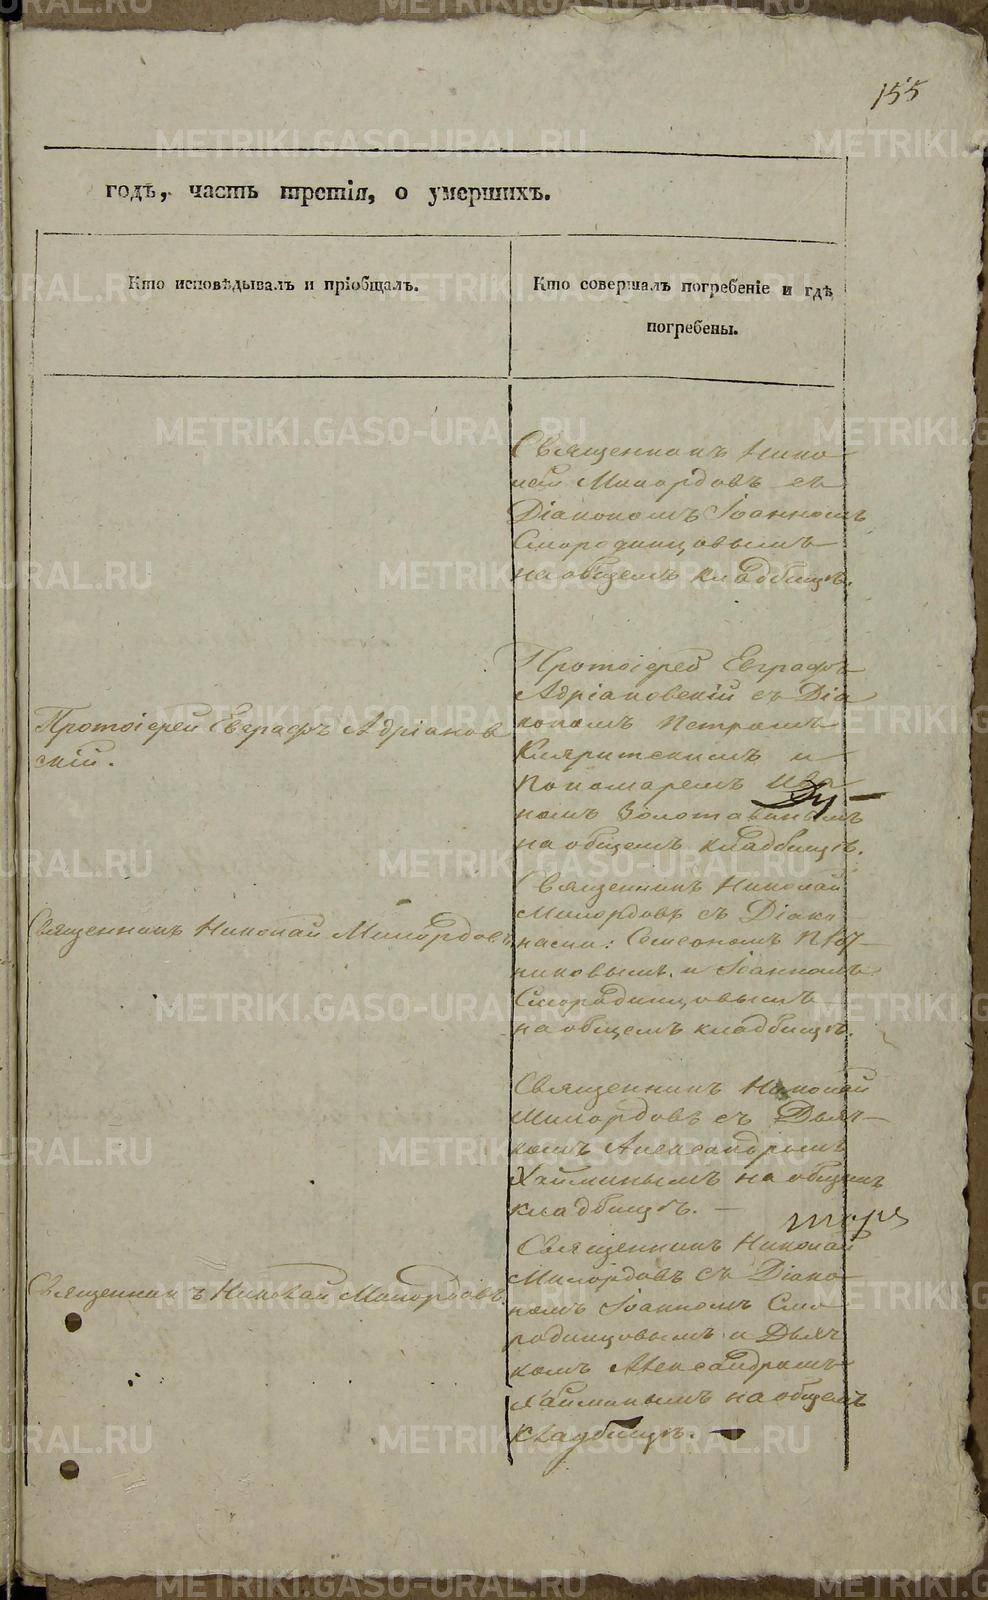 155
годѣ, часть третія, о умершихъ.
Кто исповѣдывалъ и пріобщалъ.
Кто совершалъ погребеніе и гдѣ
погребены.
Священникъ Нико
лай Милордовъ съ
Діакономъ Іоанномъ
Смородинцовымъ
на общемъ кладбищѣ.
Протоіерей Евграфъ Адріанов
скій.
Протоіерей Евграфъ
Адріановскій съ Діа
кономъ Петромъ
и
Пономаремъ Ива
номъ Золотавинымъ
на общемъ кладбищѣ.
Священникъ Николай Милордовъ
Священникъ Николай
Милордовъ съ Діако
нами: Семеономъ
и Іоанномъ
Смородинцовымъ
на общемъ кладбищѣ.
Священникъ Николай
Милордовъ съ Дьяч
комъ Александромъ
Хайминымъ на общемъ
кладбищѣ. —
Священникъ Николай Милордовъ.
Священникъ Николай
Милордовъ съ Діако
номъ Іоанномъ Смо
родинцовымъ и Дьяч
комъ Александромъ
Хайминымъ на общемъ
кладбищѣ. —
METRIKI.GASO-URAL.RU